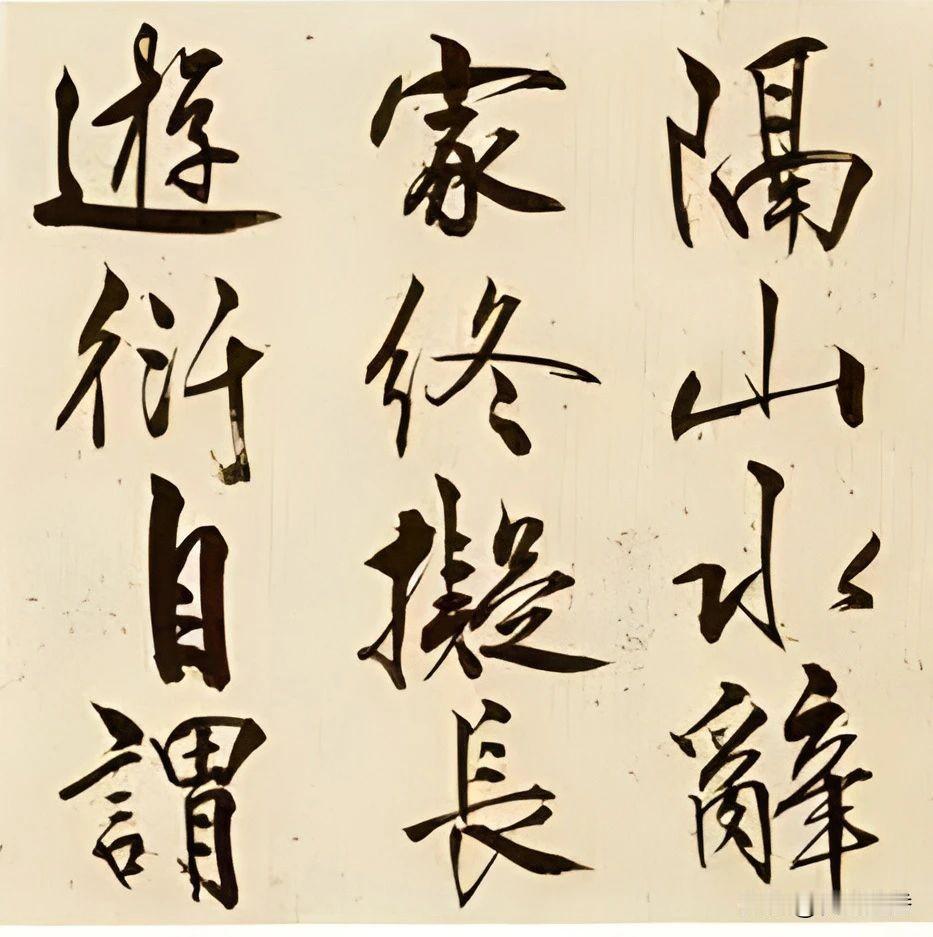 隔山水辭
家終擬長
遊衍自謂